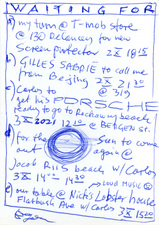 WAITING FOR
a) my turn @ T-mob store
@ 130 Delancey for new
screen protector 2X 18:15
b) GILLES SABRIÉ to call me
from Beijing 2X 21:30
c) Carlos to @ 319
get his PORSCHE
ready to go to Rockaway beach
3X 2021 12:10 @ BERGEN ST.
d) for the Sun to come
out again @
Jacob Riis beach w/ Carlos
3X 14:— 14:30 → LOUD MUSIC @
e) our table @ Nick's Lobster house
Flatbush Ave w/ Carlos 3X 15:20